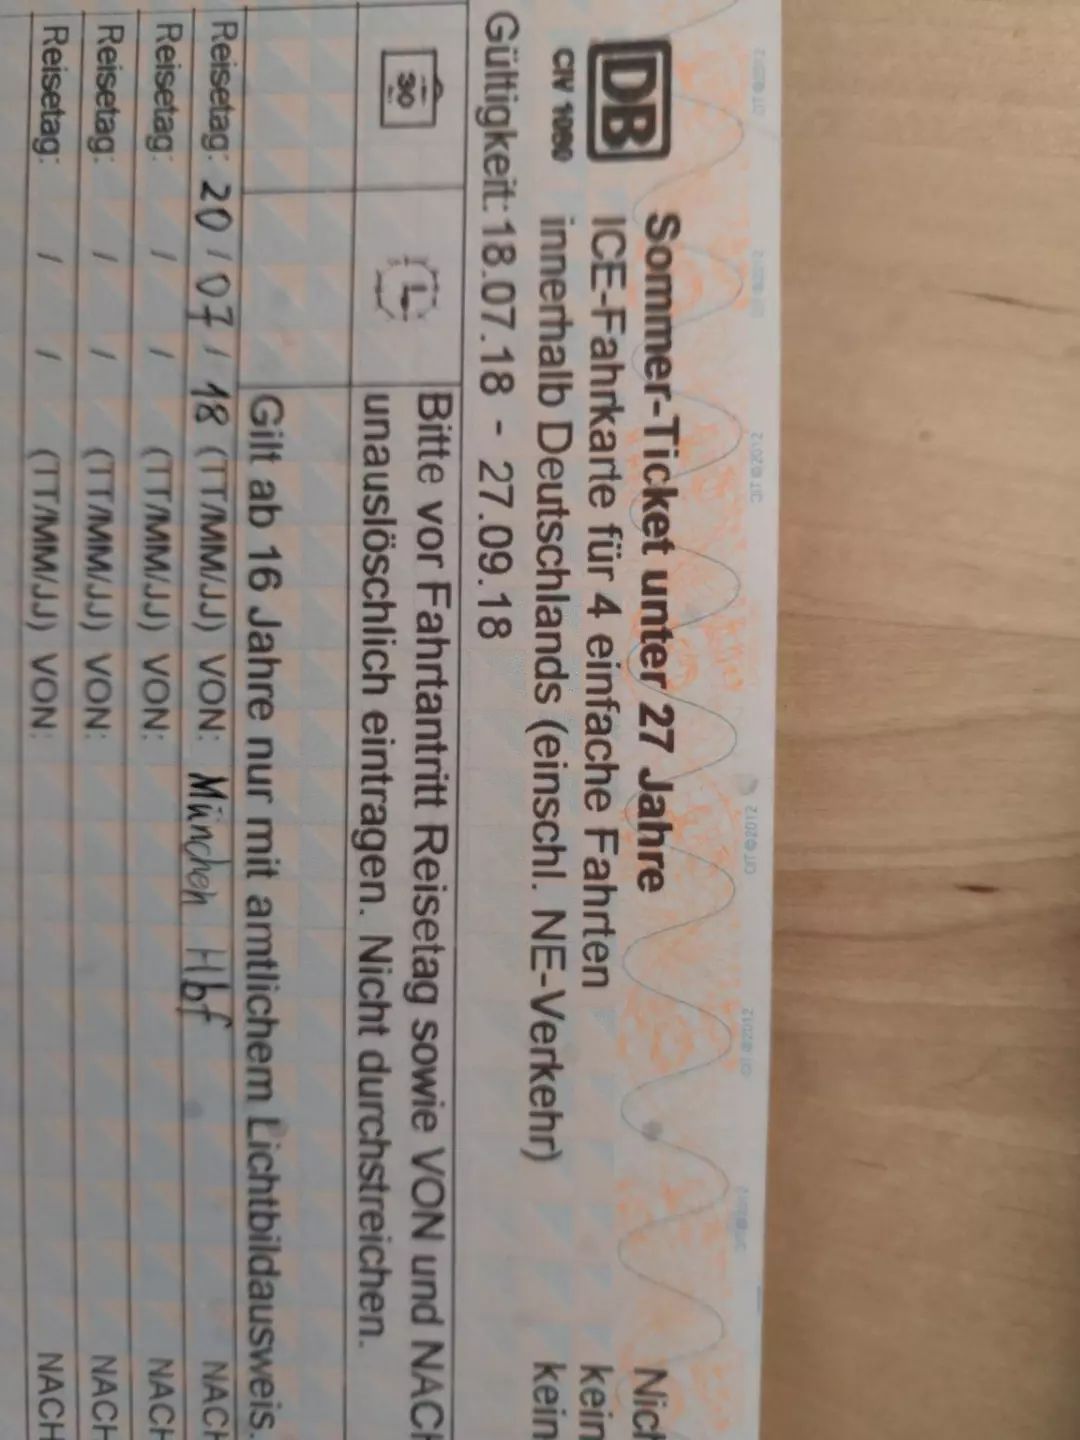 Sommer-Ticket unter 27 Jahre
DB ICE-Fahrkarte für 4 einfache Fahrten kein
CIV 1080 innerhalb Deutschlands (einschl. NE-Verkehr) kein
Gültigkeit: 18.07.18 - 27.09.18
30
Bitte vor Fahrtantritt Reisetag sowie VON und NACH
unauslöschlich eintragen. Nicht durchstreichen.
Gilt ab 16 Jahre nur mit amtlichem Lichtbildausweis.
Reisetag: 20 / 07 / 18 (TT/MM/JJ) VON: München Hbf NACH
Reisetag: / / (TT/MM/JJ) VON: NACH
Reisetag: / / (TT/MM/JJ) VON: NACH
Reisetag: / / (TT/MM/JJ) VON: NACH